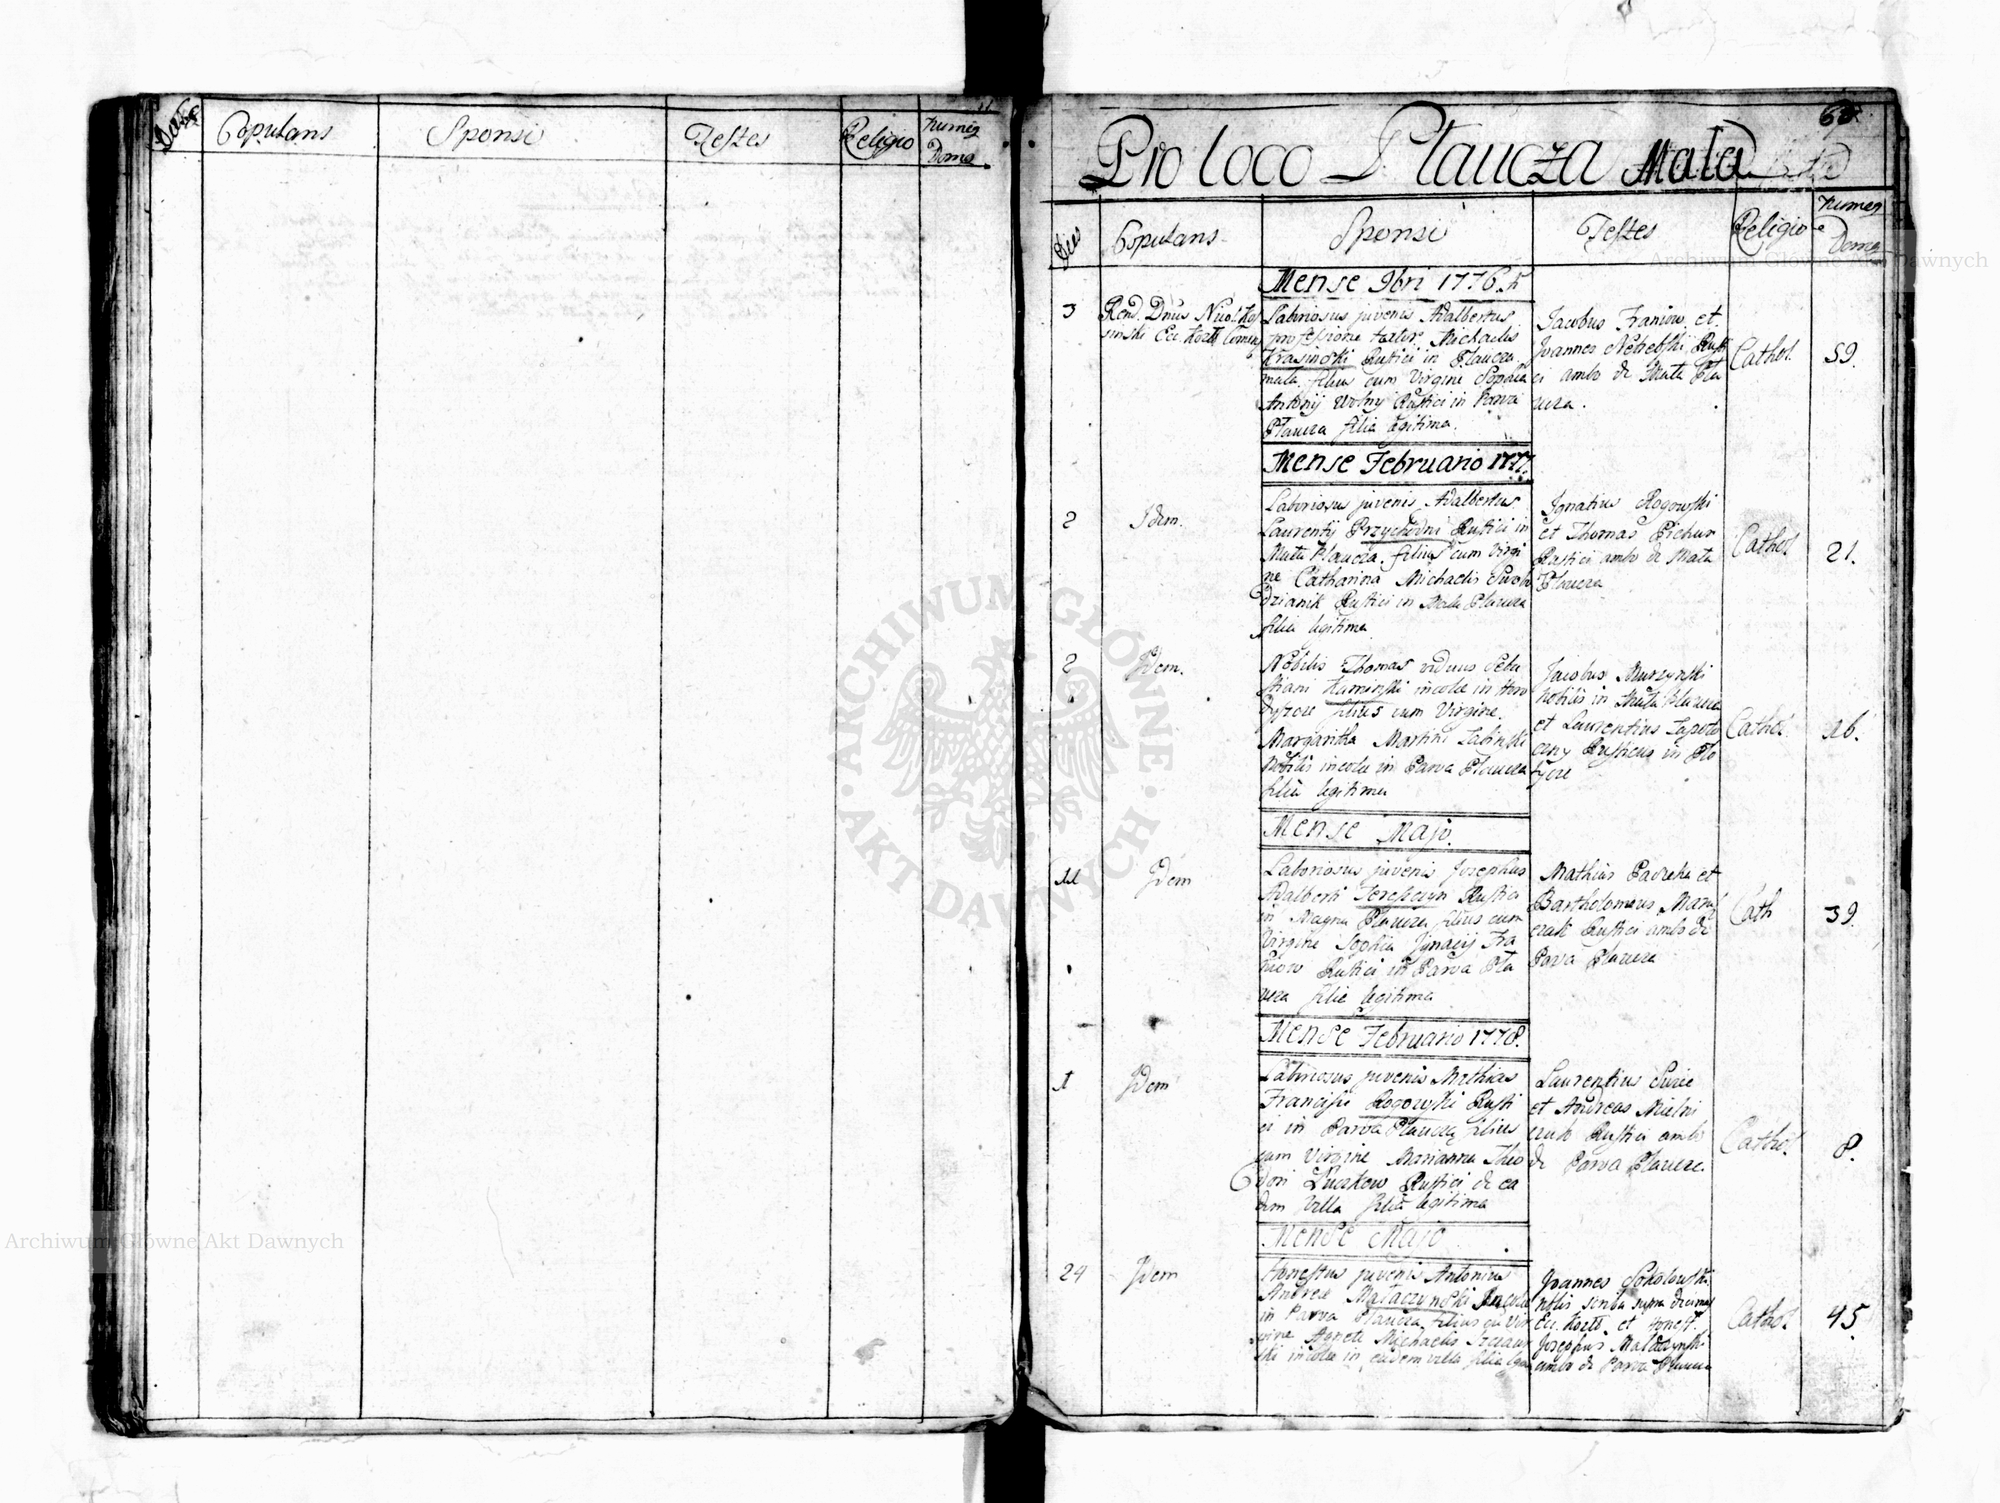 Dies
Copulans
Sponsi
Testes
Religio
Numer
Domo
Pro loco Plaucza Mala
Dies
Copulans
Sponsi
Testes
Religio
Numer
Domo
Mense 9bri 1776.
3
Laboriosus juvenis Adalbertus
professione textor Michaelis
Krasinski Rustici in Plaucza
mala filius cum Virgine Sophia
Antonij Wolny Rustici in Parva
Plaucza filia legitima.
Jacobus Franiow et
Joannes Rusti
ci ambo de Mala Pla
ucza.
Cathol.
59.
Mense Februario 1777.
2
Idem.
Laboriosus juvenis Adalbertus
Laurentij Przychodni Rustici in
Mala Plaucza filius cum Virgi
ne Catharina Michaelis
Rustici in Mala Plaucza
filia legitima
Ignatius Rogowski
et Thomas Pichur
Rustici ambo de Mala
Plaucza
Cathol
21.
2
Idem.
Nobilis Thomas viduus Seba
stiani Kaminski incolae in Horo
dyszcze filius cum Virgine
Margaritha Martini
Nobilis incolae in Parva Plaucza
filia legitima
Jacobus Murzynski
nobilis in Mala Plaucza
et Laurentius
Rusticus in Plo
tycze
Cathol.
26.
Mense Majo.
11
Idem
Laboriosus juvenis Josephus
Adalberti Rustici
in Magna Plaucza filius cum
Virgine Sophia Ignacij Fra
niow Rustici in Parva Pla
ucza filia legitima
Mathias et
Bartholomeus
Rustici ambo de
Parva Plaucza
Cath
39.
Mense Februario 1778.
1
Idem
Laboriosus juvenis Mathias
Francisci Rogowski Rusti
ci in Parva Plaucza filius
cum Virgine Marianna Theo
dori Luczkow Rustici de ea
dem Villa filia legitima
Laurentius
et Andreas Mielni
czuk Rustici ambo
de Parva Plaucza.
Cathol.
8.
Mense Majo
24
Idem
Honestus juvenis Antonius
Andreae Malaczynski Incolae
in Parva Plaucza filius cu Vir
gine Agnete Michaelis
ski incolae in eadem villa filia
Joannes Sokolowski
et Honest.
Josephus Malaczynski
ambo de Parva Plaucza
Cathol
45.
ARCHIWUM GŁÓWNE AKT DAWNYCH
Archiwum Główne Akt Dawnych
Archiwum Główne Akt Dawnych